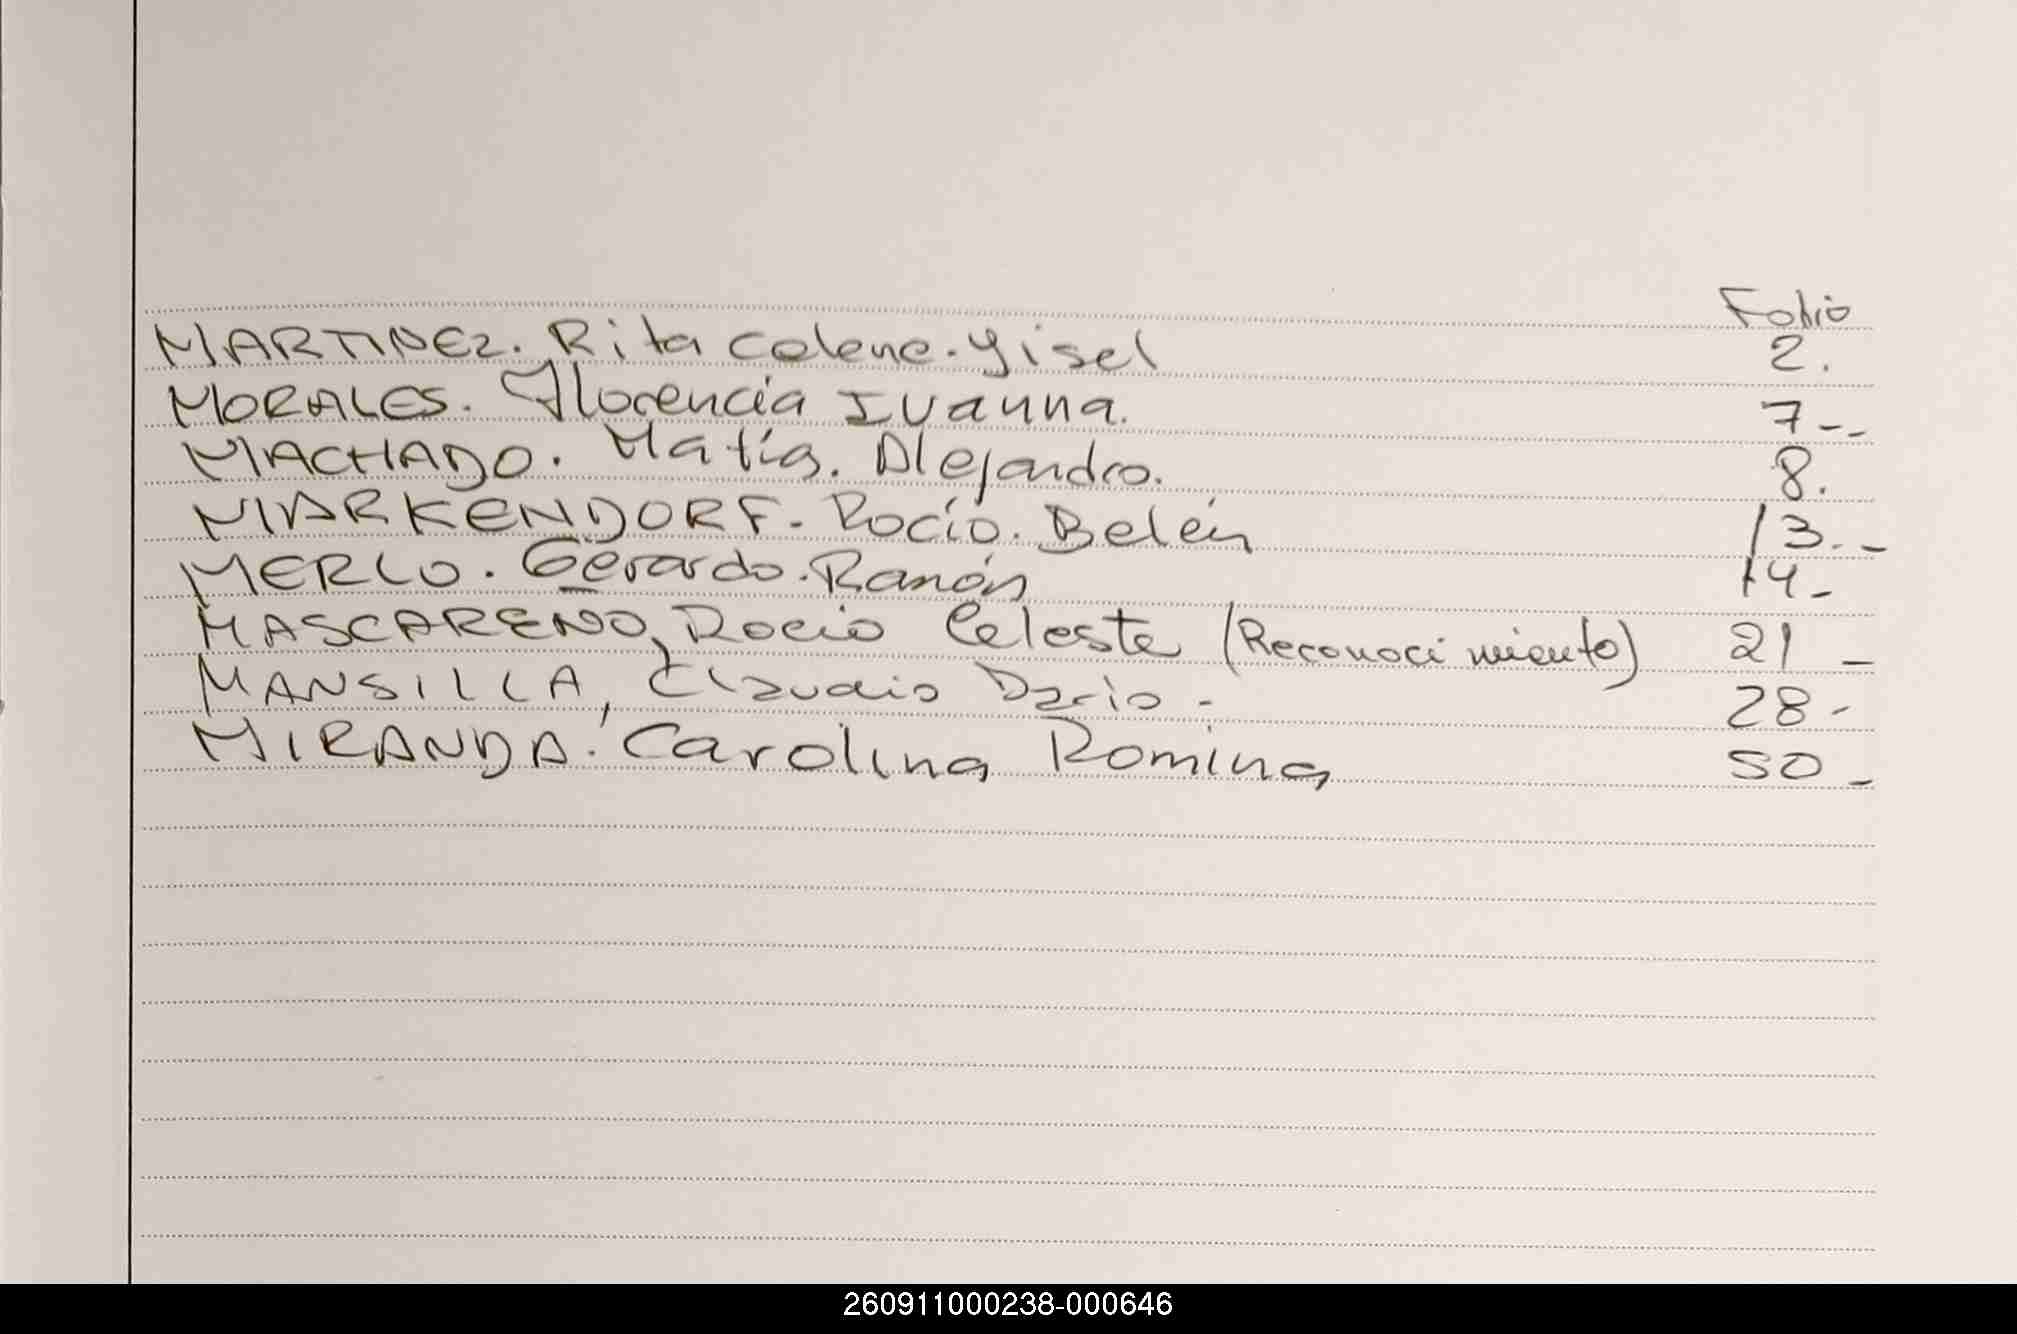 Folio
MARTINEZ. Rita Celene. Gisel 2.
MORALES. Florencia Ivanna. 7--
MACHADO. Matías. Alejandro. 8.
MARKENDORF. Rocío. Belén 13.-
MERLO. Gerardo. Ramón 14-
MASCARENO, Rocio Celeste (Reconocimiento) 21-
MANSILLA, Claudio Dario.- 28-
MIRANDA. Carolina Romina 50-
260911000238-000646